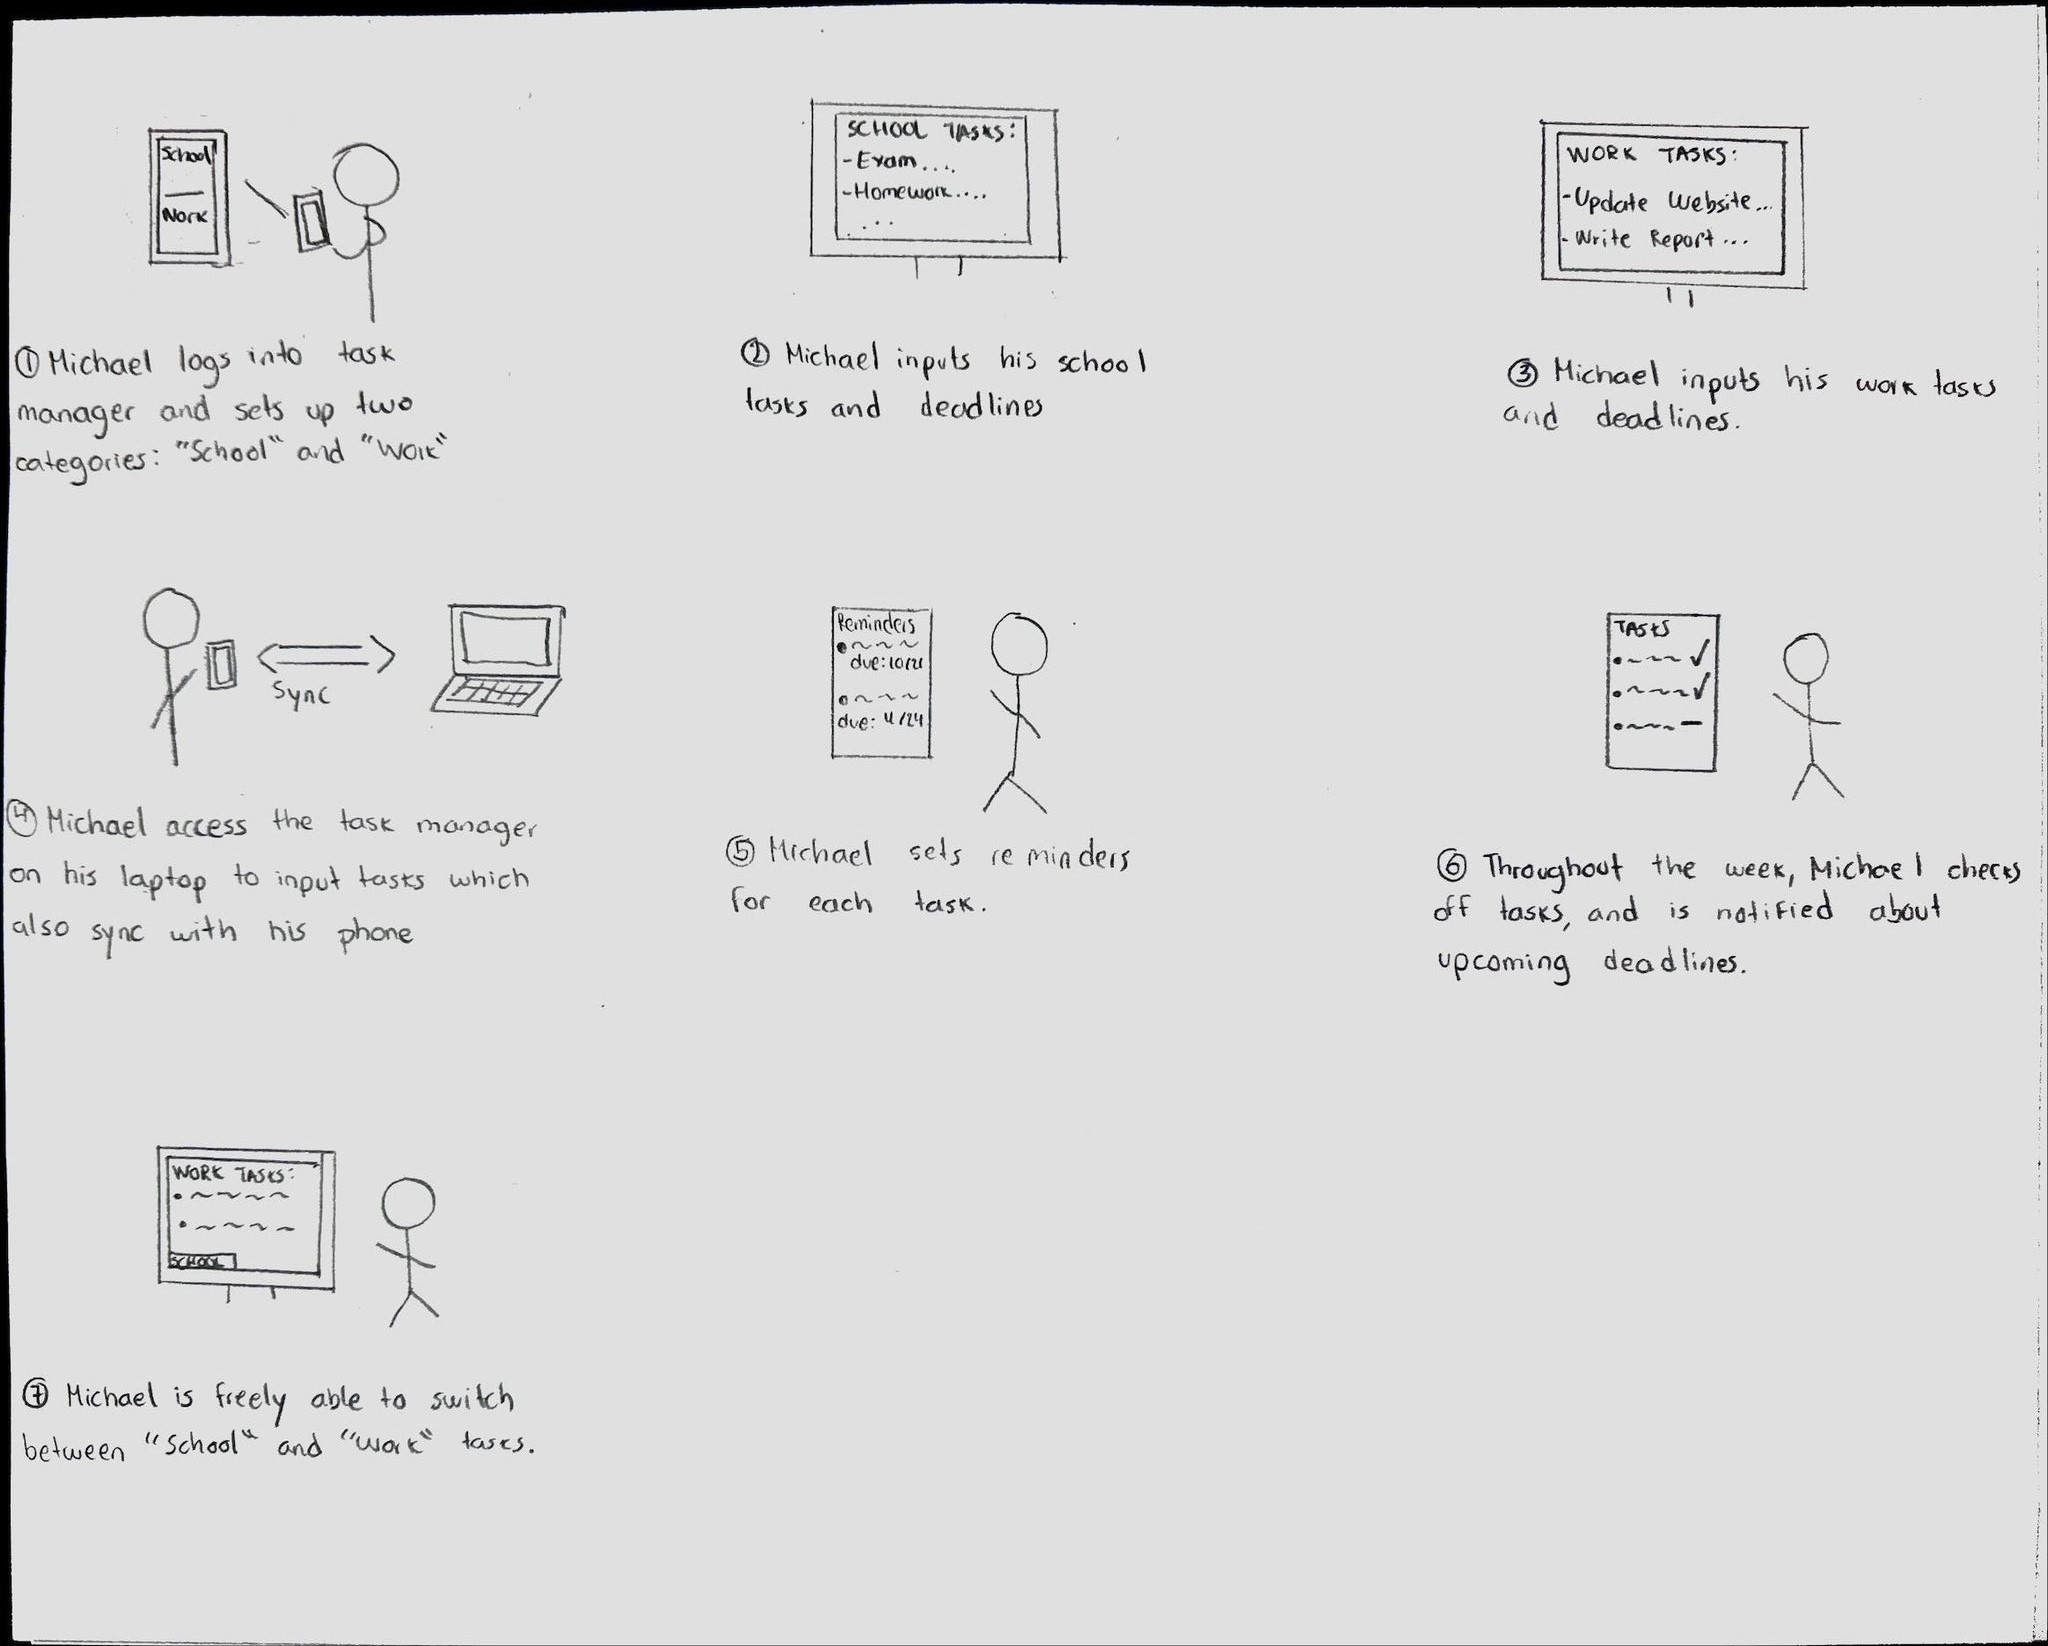 School
Work
① Michael logs into task
manager and sets up two
categories: "School" and "Work"
SCHOOL TASKS:
-Exam....
-Homework....
...
② Michael inputs his school
tasks and deadlines
WORK TASKS:
-Update Website...
-Write Report...
③ Michael inputs his work tasks
and deadlines.
Sync
④ Michael access the task manager
on his laptop to input tasks which
also sync with his phone
Reminders
due:10/21
due: 4/24
⑤ Michael sets reminders
for each task.
TASKS
⑥ Throughout the week, Michael checks
off tasks, and is notified about
upcoming deadlines.
WORK TASKS:
SCHOOL
⑦ Michael is freely able to switch
between "School" and "Work" tasks.